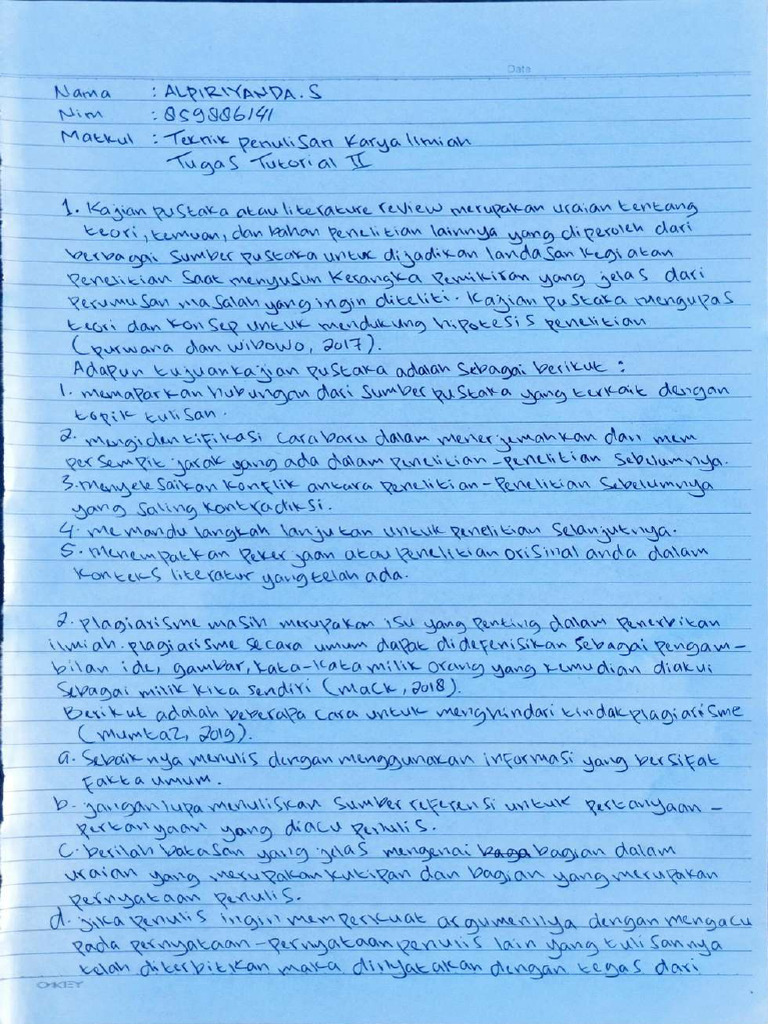 Date
Nama : ALPIRIYANDA.S
Nim : 859886141
Matkul : Teknik Penulisan Karya Ilmiah
Tugas Tutorial II
1. Kajian pustaka atau literature review merupakan uraian tentang
teori, temuan, dan bahan penelitian lainnya yang diperoleh dari
berbagai sumber pustaka untuk dijadikan landasan kegiatan
penelitian saat menyusun kerangka pemikiran yang jelas dari
perumusan masalah yang ingin diteliti. Kajian pustaka mengupas
teori dan konsep untuk mendukung hipotesis penelitian
(purwana dan wibowo, 2017).
Adapun tujuan kajian pustaka adalah sebagai berikut :
1. memaparkan hubungan dari sumber pustaka yang terkait dengan
topik tulisan.
2. mengidentifikasi cara baru dalam menerjemahkan dan mem
persempit jarak yang ada dalam penelitian-penelitian sebelumnya.
3. menyelesaikan konflik antara penelitian-penelitian sebelumnya
yang saling kontradiksi.
4. memandu langkah lanjutan untuk penelitian selanjutnya.
5. menempatkan pekerjaan atau penelitian orisinal anda dalam
konteks literatur yang telah ada.
2. plagiarisme masih merupakan isu yang penting dalam penerbitan
ilmiah. plagiarisme secara umum dapat didefenisikan sebagai pengam-
bilan ide, gambar, kata-kata milik orang yang kemudian diakui
sebagai milik kita sendiri (mack, 2018).
Berikut adalah beberapa cara untuk menghindari tindak plagiarisme
(mumtaz, 2019).
a. Sebaiknya menulis dengan menggunakan informasi yang bersifat
fakta umum.
b. jangan lupa menuliskan sumber referensi untuk pertanyaan-
pertanyaan yang diacu penulis.
c. berilah batasan yang jelas mengenai bagian dalam
uraian yang merupakan kutipan dan bagian yang merupakan
pernyataan penulis.
d. jika penulis ingin memperkuat argumennya dengan mengacu
pada pernyataan-pernyataan penulis lain yang tulisannya
telah diterbitkan maka dinyatakan dengan tegas dari